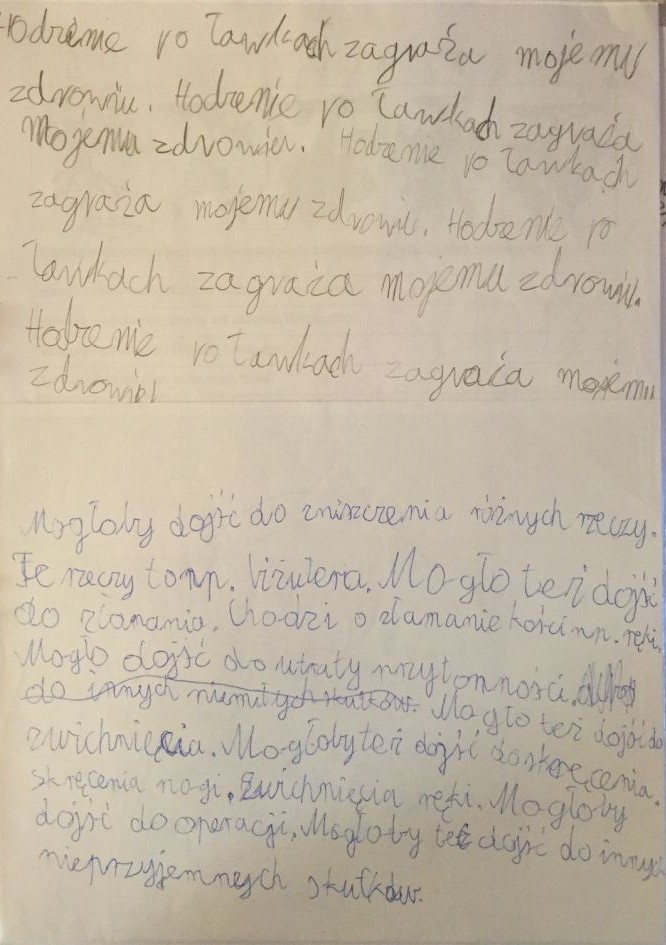 Hodzenie po ławkach zagraża mojemu
zdrowiu. Hodzenie po ławkach zagraża
Mojemu zdrowiu. Hodzenie po ławkach
zagraża mojemu zdrowiu. Hodzenie po
ławkach zagraża mojemu zdrowiu.
Hodzenie po ławkach zagraża mojemu
zdrowiu
Mogłoby dojść do zniszczenia różnych rzeczy.
Te rzeczy to np. biżuteria. Mogło też dojść
do złamania. Chodzi o złamanie kości np. ręki.
Mogło dojść do utraty przytomności.
do innych niemiłych skutków. Mogło też dojść do
zwichnięcia. Mogłoby też dojść do skręcenia.
skręcenia nogi. Zwichnięcia ręki. Mogłoby
dojść do operacji. Mogłoby też dojść do innych
nieprzyjemnych skutków.